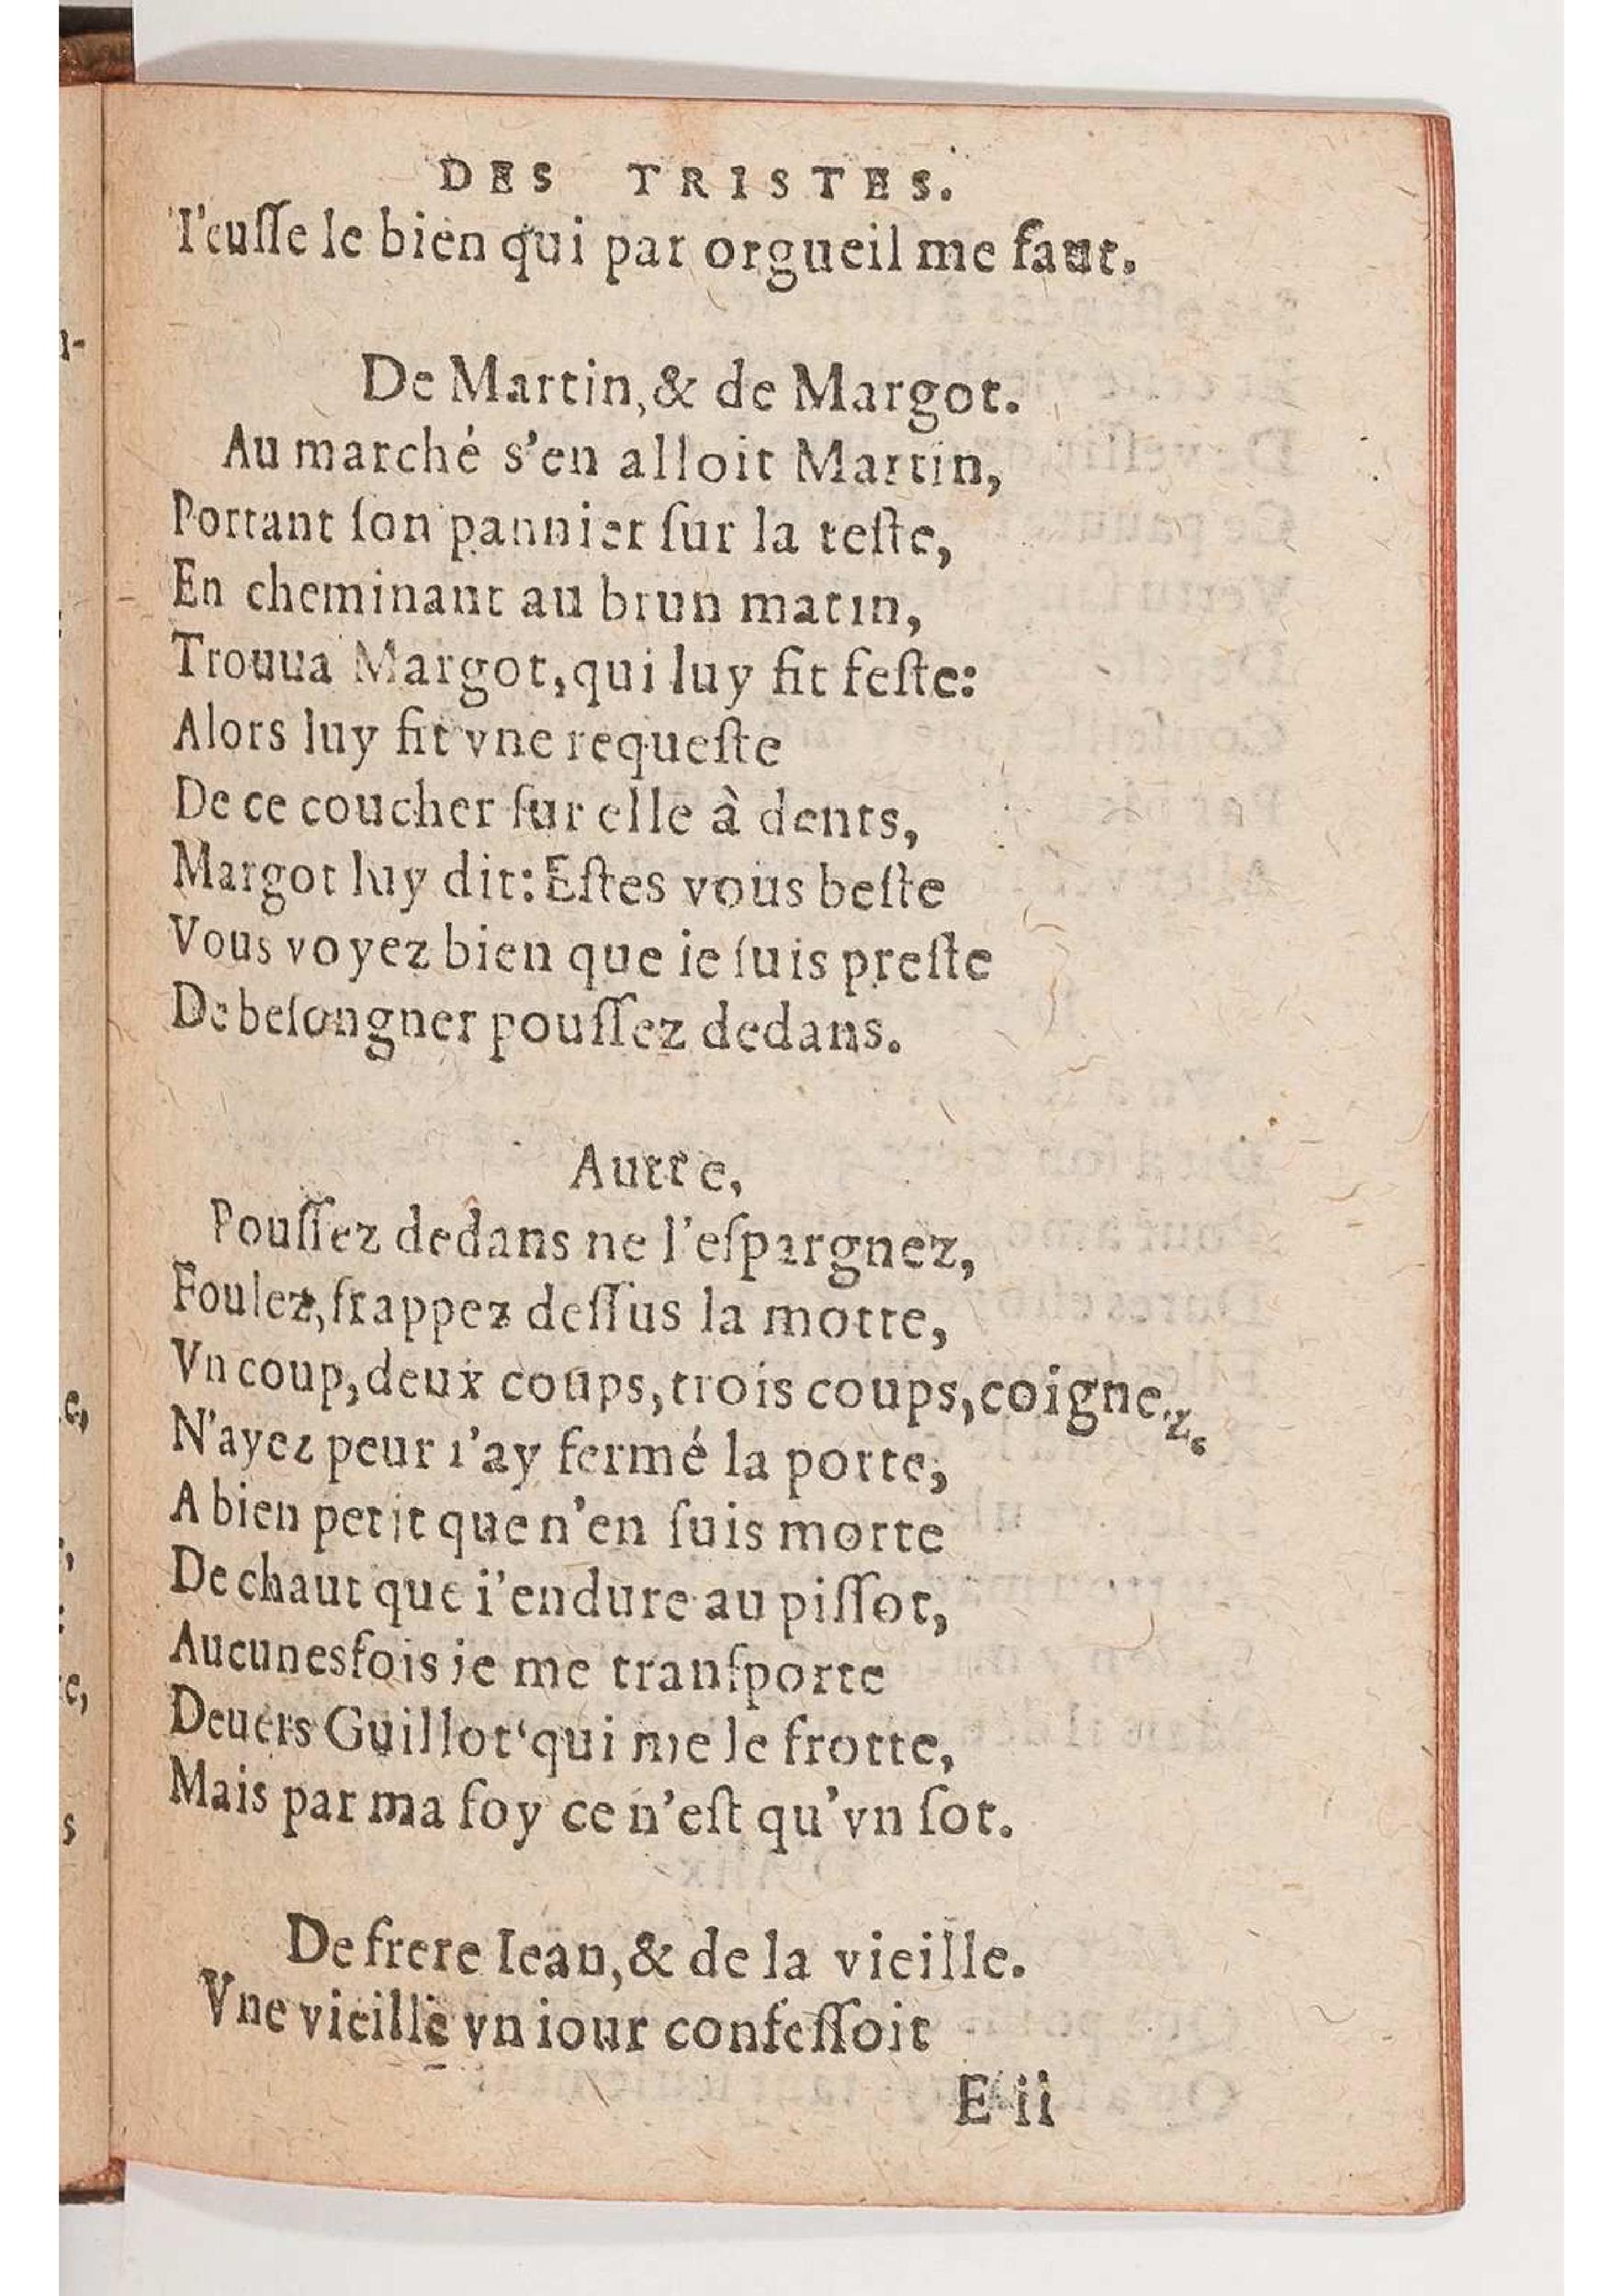 DES TRISTES.
I'eusse le bien qui par orgueil me faut.
De Martin, & de Margot.
Au marché s'en alloit Martin,
Portant ſon pannier ſur la teſte,
En cheminant au brun matin,
Trouua Margot, qui luy fit feſte:
Alors luy fit vne requeſte
De ce coucher ſur elle à dents,
Margot luy dit: Eſtes vous beſte
Vous voyez bien que ie ſuis preſte
De beſongner pouſſez dedans.
Autre,
Pouſſez dedans ne l'eſpargnez,
Foulez, frappez deſſus la motte,
Vn coup, deux coups, trois coups, coignez.
N'ayez peur i'ay fermé la porte,
A bien petit que n'en ſuis morte
De chaut que i'endure au piſſot,
Aucunesfois ie me tranſporte
Deuers Guillot qui me le frotte,
Mais par ma foy ce n'eſt qu'vn ſot.
De frere Iean, & de la vieille.
Vne vieille vn iour confeſſoit
E ii